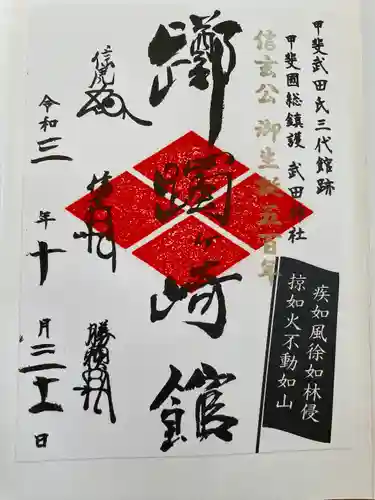 甲斐武田氏三代館跡
甲斐國総鎮護 武田神社
信玄公 御生誕五百年
躑躅ヶ崎館
疾如風徐如林侵
掠如火不動如山
信虎
信玄
勝頼
令和三年十月三十一日